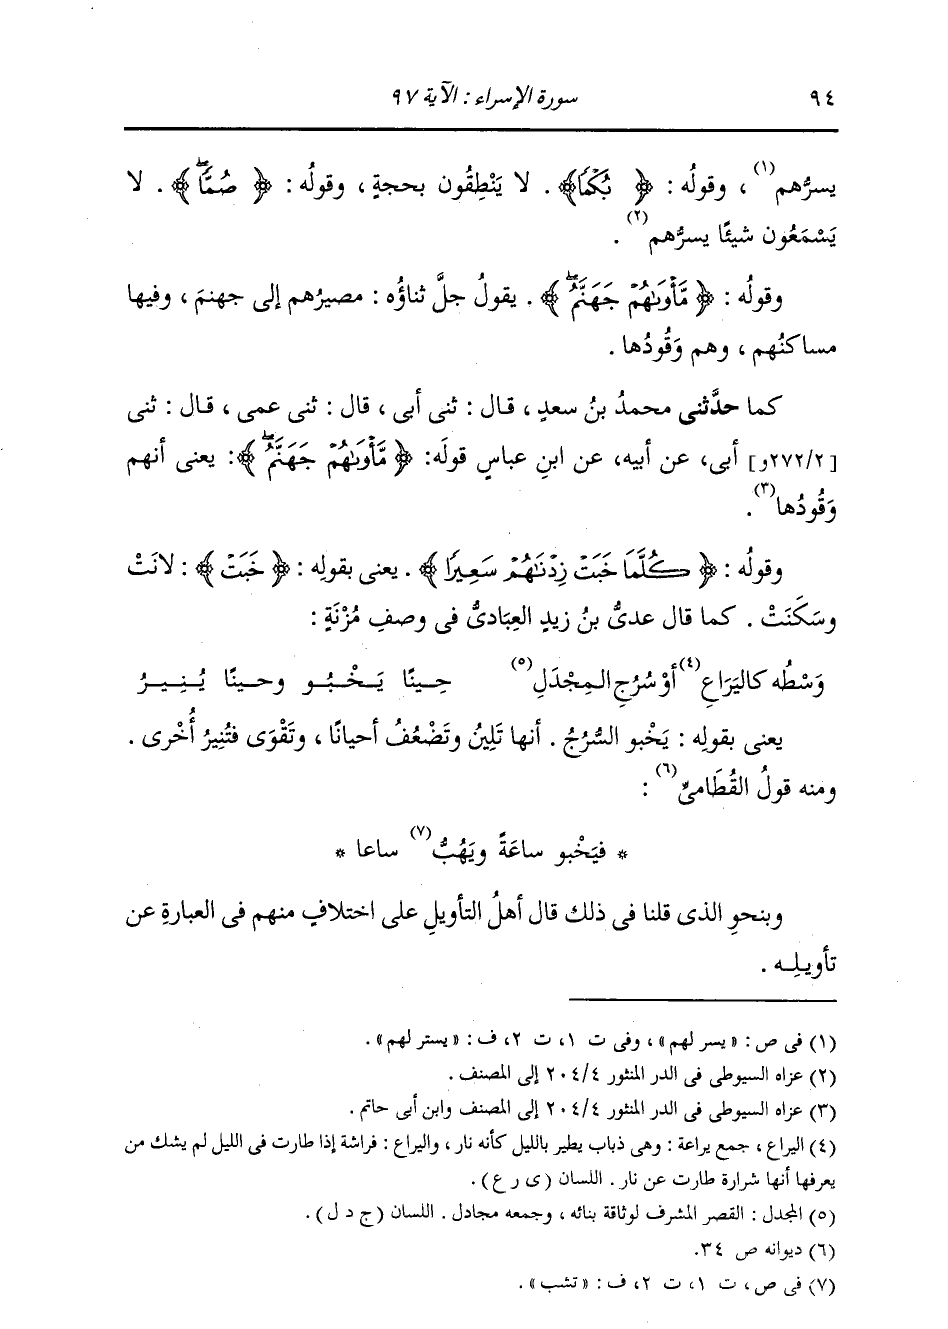 ٩٤ سورة الإسراء : الآية ٩٧
يسرُّهم(١) ، وقولُه : ﴿ بُكْمًا﴾ . لا يَنْطِقُون بحجةٍ ، وقولُه : ﴿ صُمًّا ۖ﴾ . لا
يَسْمَعُون شيئًا يسرُّهم(٢) .
وقولُه : ﴿ مَّأْوَىٰهُمْ جَهَنَّمُ ۖ﴾ . يقولُ جلَّ ثناؤُه : مصيرُهم إلى جهنمَ ، وفيها
مساكنُهم ، وهم وَقُودُها .
كما حدَّثنى محمدُ بنُ سعدٍ ، قال : ثنى أبى ، قال : ثنى عمى ، قال : ثنى
[٢٧٢/٢و] أبى، عن أبيه، عن ابنِ عباسٍ قولَه: ﴿ مَّأْوَىٰهُمْ جَهَنَّمُ ۖ﴾: يعنى أنهم
وَقُودُها(٣).
وقولُه : ﴿ كُلَّمَا خَبَتْ زِدْنَٰهُمْ سَعِيرًا ﴾ . يعنى بقولِه : ﴿ خَبَتْ ﴾ : لانَتْ
وسَكَنَتْ . كما قال عدىُّ بنُ زيدٍ العِبَادىُّ فى وصفِ مُزْنَةٍ :
وَسْطُه كاليَرَاعِ(٤) أوْ سُرُجِ المِجْدَلِ(٥) حِينًا يَخْبُو وحينًا يُنِيرُ
يعنى بقولِه : يَخْبو السُّرُجُ . أنها تَلِينُ وتَضْعُفُ أحيانًا ، وتَقْوَى فتُنِيرُ أُخْرى .
ومنه قولُ القُطَامىِّ(٦) :
* فيَخْبو ساعَةً ويَهُبُّ(٧) ساعا *
وبنحوِ الذى قلنا فى ذلك قال أهلُ التأويلِ على اختلافٍ منهم فى العبارةِ عن
تأويلِه .
(١) فى ص : « يسر لهم » ، وفى ت ١، ت ٢، ف : « يستر لهم » .
(٢) عزاه السيوطى فى الدر المنثور ٢٠٤/٤ إلى المصنف .
(٣) عزاه السيوطى فى الدر المنثور ٢٠٤/٤ إلى المصنف وابن أبى حاتم .
(٤) اليراع ، جمع يراعة : وهى ذباب يطير بالليل كأنه نار ، واليراع : فراشة إذا طارت فى الليل لم يشك من
يعرفها أنها شرارة طارت عن نار . اللسان (ى ر ع) .
(٥) المجدل : القصر المشرف لوثاقة بنائه ، وجمعه مجادل . اللسان (ج د ل) .
(٦) ديوانه ص ٣٤.
(٧) فى ص، ت ١، ت ٢، ف : « تشب » .